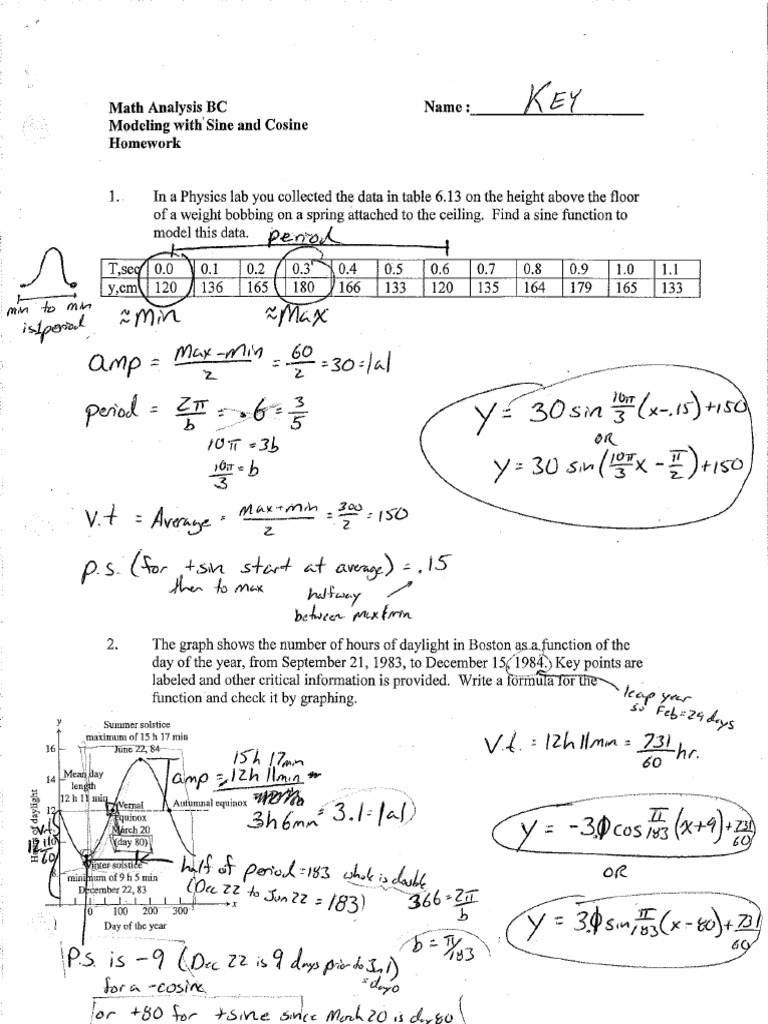 Math Analysis BC
Name : KEY
Modeling with Sine and Cosine
Homework
1. In a Physics lab you collected the data in table 6.13 on the height above the floor
of a weight bobbing on a spring attached to the ceiling. Find a sine function to
model this data.
period
T,sec 0.0 0.1 0.2 0.3 0.4 0.5 0.6 0.7 0.8 0.9 1.0 1.1
y,cm 120 136 165 180 166 133 120 135 164 179 165 133
min to min
is 1 period
≈Min
≈Max
amp = Max-min/2 = 60/2 = 30 = |a|
period = 2π/b = .6 = 3/5
10π = 3b
10π/3 = b
y = 30 sin 10π/3 (x-.15)+150
OR
y = 30 sin(10π/3 x - π/2)+150
V.t = Average = Max+min/2 = 300/2 = 150
p.s. (for +sin start at average) = .15
then to max
halfway
between max & min
2. The graph shows the number of hours of daylight in Boston as a function of the
day of the year, from September 21, 1983, to December 15, 1984. Key points are
labeled and other critical information is provided. Write a formula for the
function and check it by graphing.
leap year
so Feb=29 days
y
Summer solstice
maximum of 15 h 17 min
June 22, 84
16
14
12
10
Mean day
length
12 h 11 min
Vernal
equinox
March 20
(day 80)
Autumnal equinox
Winter solstice
minimum of 9 h 5 min
December 22, 83
Hours of daylight
0 100 200 300
x
Day of the year
V.t.
12 11/60
15h 17min
amp = -12h 11min
3h 6min = 3.1 = |a|
V.t. = 12h 11min = 731/60 hr.
half of period = 183 whole is double
(Dec 22 to Jun 22 = 183)
366 = 2π/b
b = π/183
y = -3.1 cos π/183 (x+9)+731/60
OR
y = 3.1 sin π/183 (x-80)+731/60
P.S. is -9 (Dec 22 is 9 days prior to Jan 1)
= day 0
for a -cosine
or +80 for +sine since March 20 is day 80